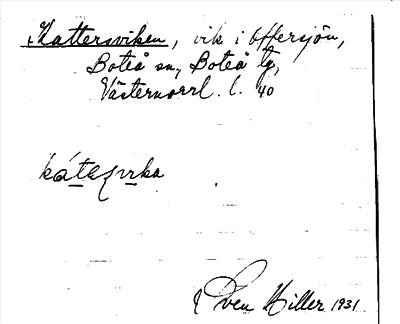 Kattersviken, vik i Offersjön,
Boteå sn, Boteå tg,
Västernorrl. l. 40
Sven Hiller 1931